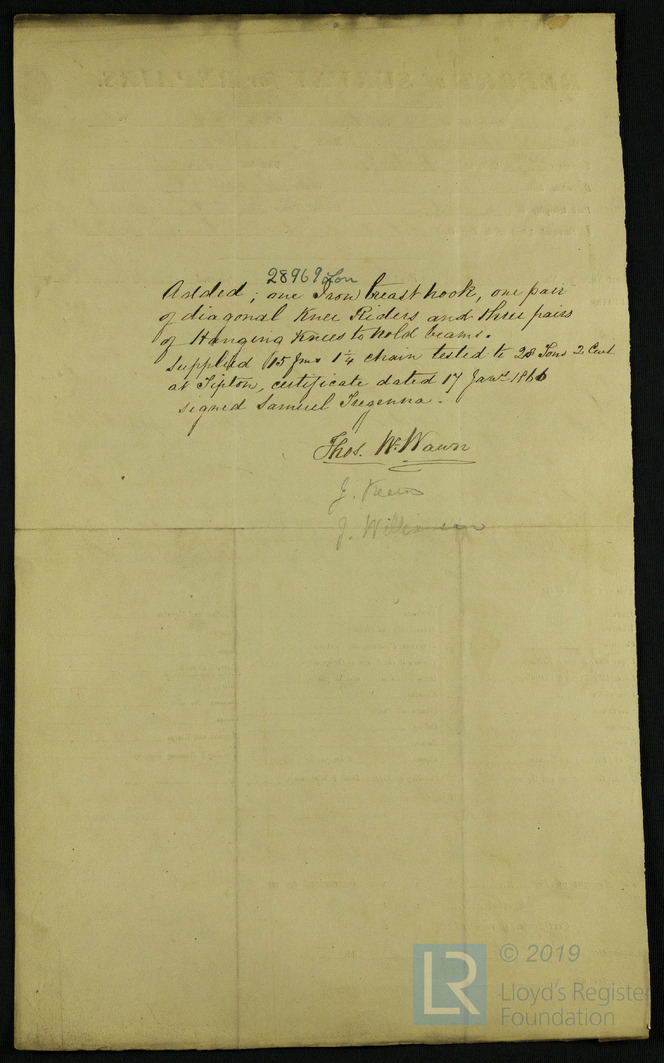 28969 Lon
Added; one Iron breasthook, one pair
of diagonal Knee Riders and three pairs
of Hanging Knees to hold beams.
Supplied 15 fms 1 1/4 chain tested to 28 Tons 2 Cwt
at Tipton, certificate dated 17 Jany 1866
signed Samuel Tregenna.
Thos. W. Wawn
J.
J. Williamson
LR © 2019
Lloyd's Register
Foundation